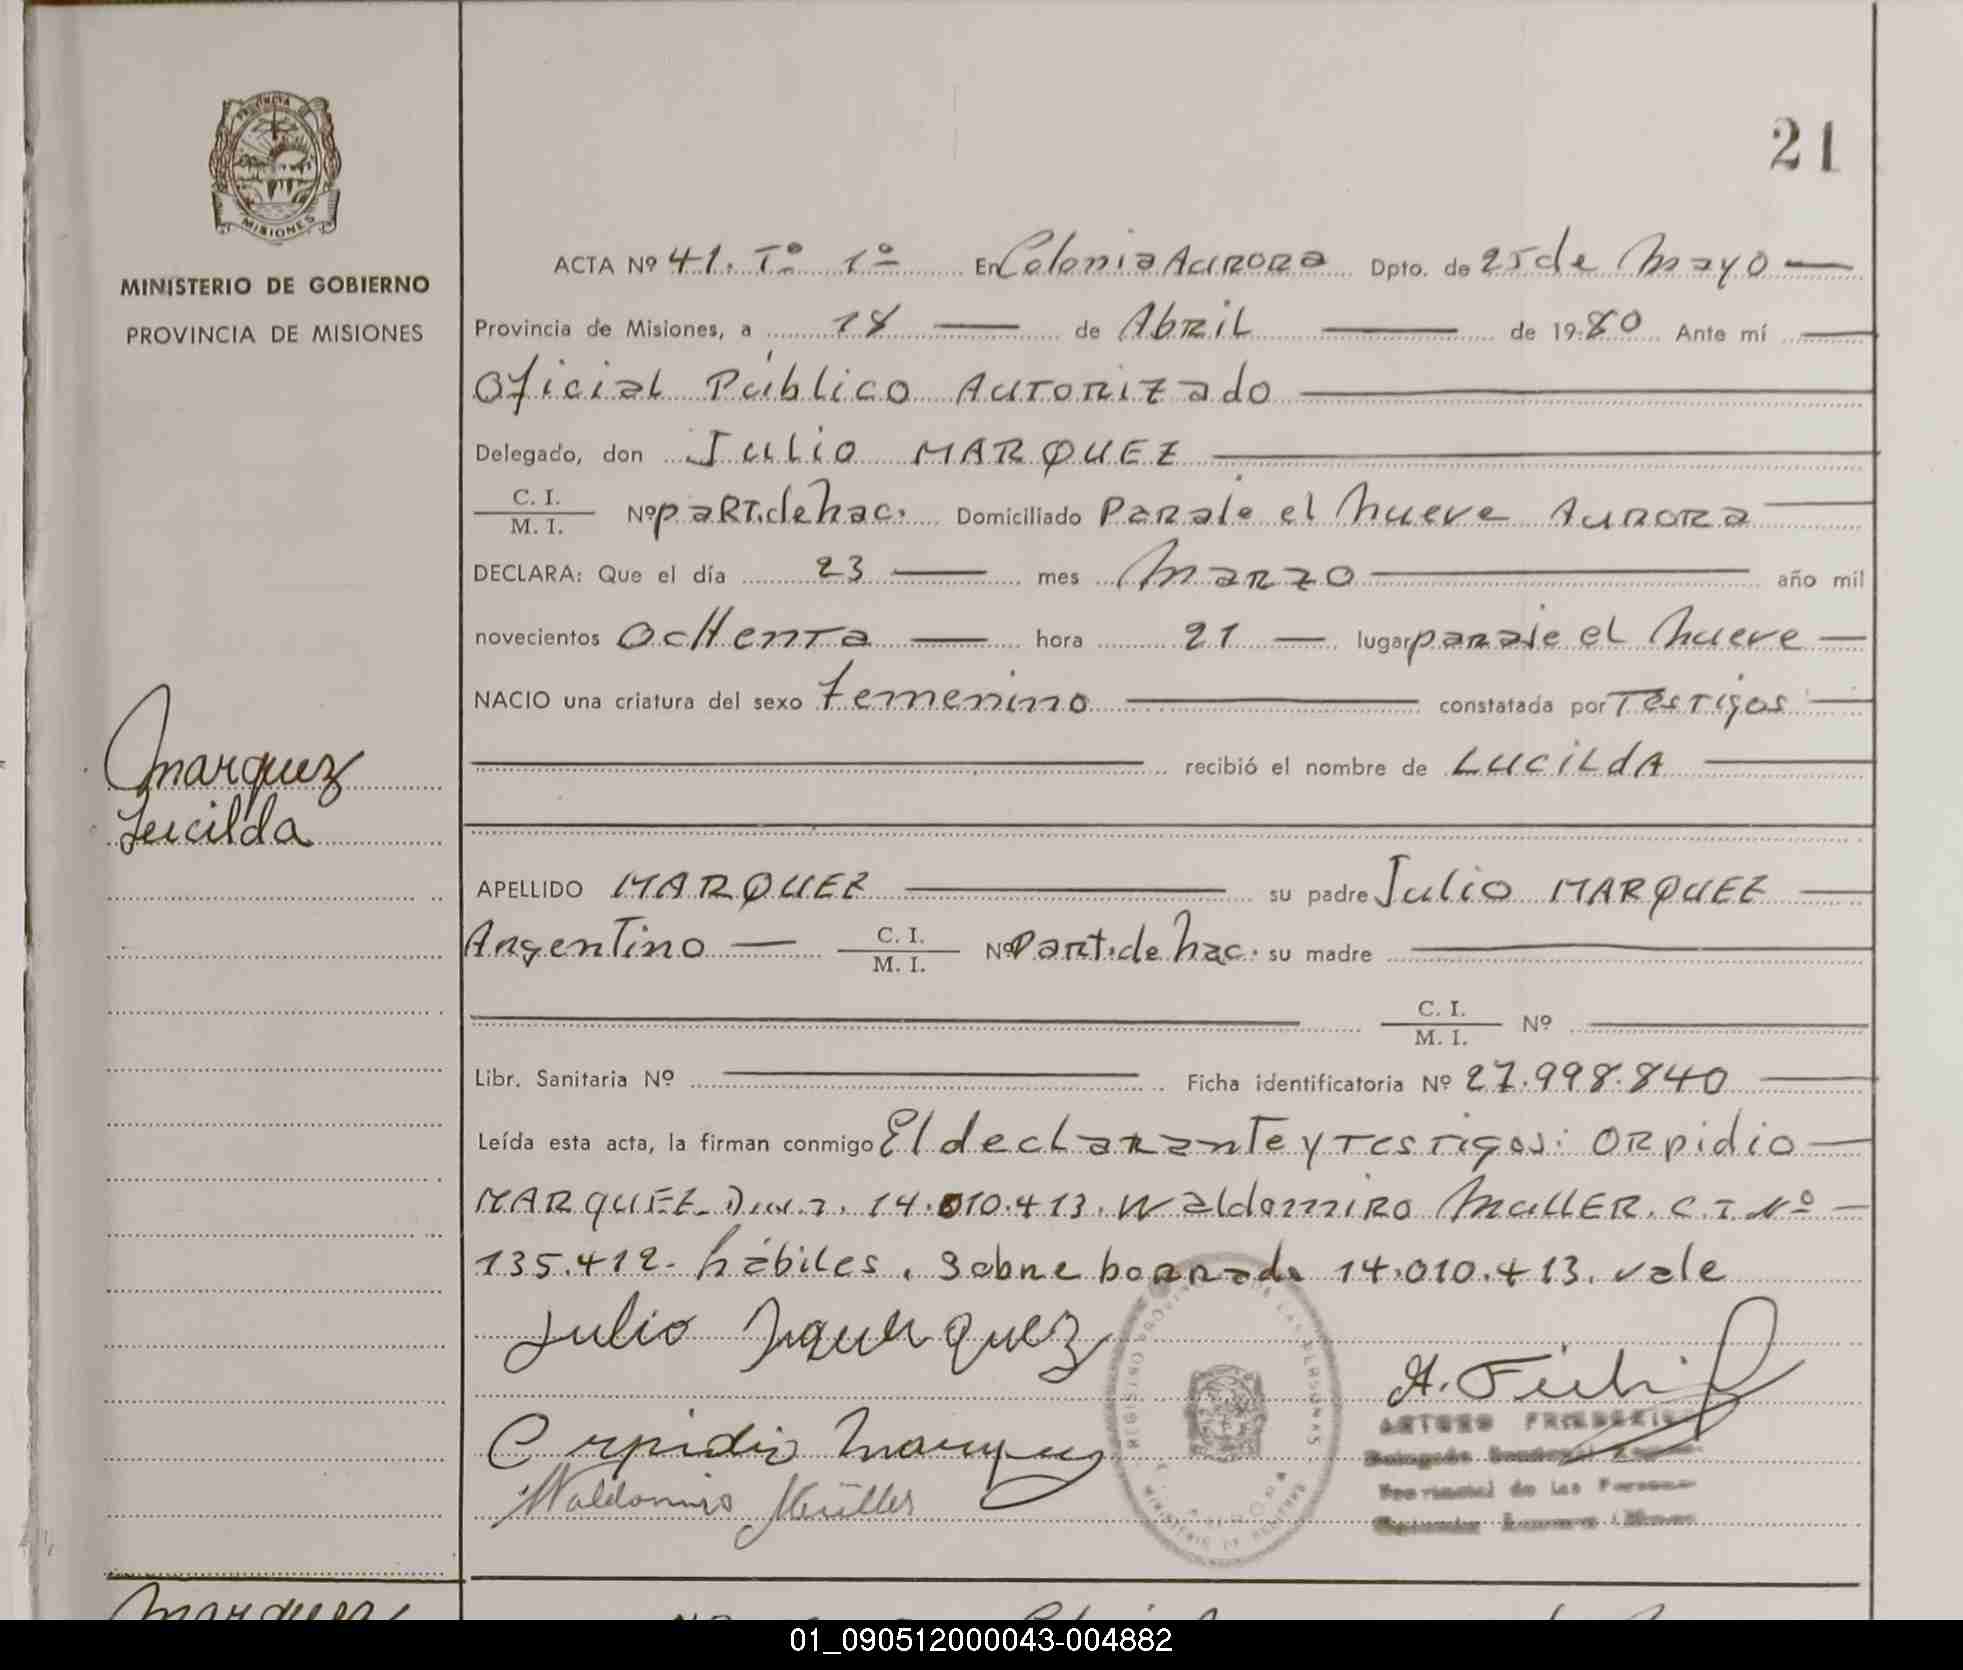 21
PROVINCIA DE
MISIONES
MINISTERIO DE GOBIERNO
PROVINCIA DE MISIONES
Marquez
Lucilda
ACTA Nº 41. Tº 1º En Colonia Aurora Dpto. de 25 de Mayo
Provincia de Misiones, a 18 de Abril de 1980 Ante mí
Oficial Público Autorizado
Delegado, don Julio MARQUEZ
C. I.
M. I. Nº part. de nac. Domiciliado Paraje el nueve Aurora
DECLARA: Que el día 23 mes Marzo año mil
novecientos ochenta hora 21 lugar paraje el nueve
NACIO una criatura del sexo femenino constatada por Testigos
recibió el nombre de LUCILDA
APELLIDO MARQUEZ su padre Julio MARQUEZ
Argentino C. I.
M. I. Nº part. de nac. su madre
C. I.
M. I. Nº
Libr. Sanitaria Nº Ficha identificatoria Nº 27.998.840
Leída esta acta, la firman conmigo El declarante y testigos: Orpidio
MARQUEZ 14.010.413. Waldomiro Muller. C. I. Nº
135.412. hábiles. Sobre borrado 14.010.413. vale
Julio Marquez
Orpidio Marquez
Waldomiro Müller
ARTURO
01_090512000043-004882